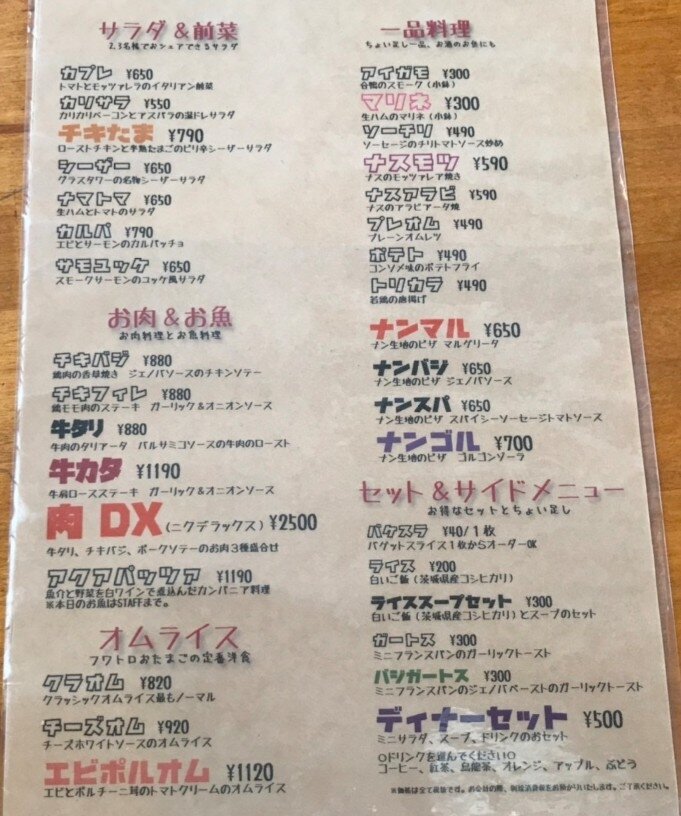 サラダ&前菜
2,3名様でおシェアできるサラダ
カプレ ¥650
トマトとモッツァレラのイタリアン前菜
カリサラ ¥550
カリカリベーコンとアスパラの温ドレサラダ
チキたま ¥790
ローストチキンと半熟たまごのピリ辛シーザーサラダ
シーザー ¥650
グラスタワーの名物シーザーサラダ
ナマトマ ¥650
生ハムとトマトのサラダ
カルパ ¥790
エビとサーモンのカルパッチョ
サモユッケ ¥650
スモークサーモンのユッケ風サラダ
お肉&お魚
お肉料理とお魚料理
チキバジ ¥880
鶏肉の香草焼き ジェノバソースのチキンソテー
チキフィレ ¥880
鶏モモ肉のステーキ ガーリック&オニオンソース
牛タリ ¥880
牛肉のタリアータ バルサミコソースの牛肉のロースト
牛カタ ¥1190
牛肩ロースステーキ ガーリック&オニオンソース
肉DX(ニクデラックス) ¥2500
牛タリ、チキバジ、ポークソテーのお肉3種盛合せ
アクアパッツァ ¥1190
魚介と野菜を白ワインで煮込んだカンパニア料理
※本日のお魚はSTAFFまで。
オムライス
フワトロおたまごの定番洋食
クラオム ¥820
クラッシックオムライス最もノーマル
チーズオム ¥920
チーズホワイトソースのオムライス
エビポルオム ¥1120
エビとポルチーニ茸のトマトクリームのオムライス
一品料理
ちょい足し一品、お酒のお供にも
アイガモ ¥300
合鴨のスモーク(小鉢)
マリネ ¥300
生ハムのマリネ(小鉢)
ソーチリ ¥490
ソーセージのチリトマトソース炒め
ナスモツ ¥590
ナスのモッツァレア焼き
ナスアラビ ¥590
ナスのアラビアータ焼
プレオム ¥490
プレーンオムレツ
ポテト ¥490
コンソメ味のポテトフライ
トリカラ ¥490
若鶏の唐揚げ
ナンマル ¥650
ナン生地のピザ マルゲリータ
ナンバジ ¥650
ナン生地のピザ ジェノバソース
ナンスパ ¥650
ナン生地のピザ スパイシーソーセージトマトソース
ナンゴル ¥700
ナン生地のピザ ゴルゴンゾーラ
セット&サイドメニュー
お得なセットとちょい足し
バケスラ ¥40/1枚
バゲットスライス1枚からオーダーOK
ライス ¥200
白いご飯(茨城県産コシヒカリ)
ライススープセット ¥300
白いご飯(茨城県産コシヒカリ)とスープのセット
ガートス ¥300
ミニフランスパンのガーリックトースト
バジガートス ¥300
ミニフランスパンのジェノバペーストのガーリックトースト
ディナーセット ¥500
ミニサラダ、スープ、ドリンクのおセット
○ドリンクを選んでください○
コーヒー、紅茶、烏龍茶、オレンジ、アップル、ぶどう
※価格は全て税抜です。お会計の際、別途消費税をお預かりいたします。ご了承ください。